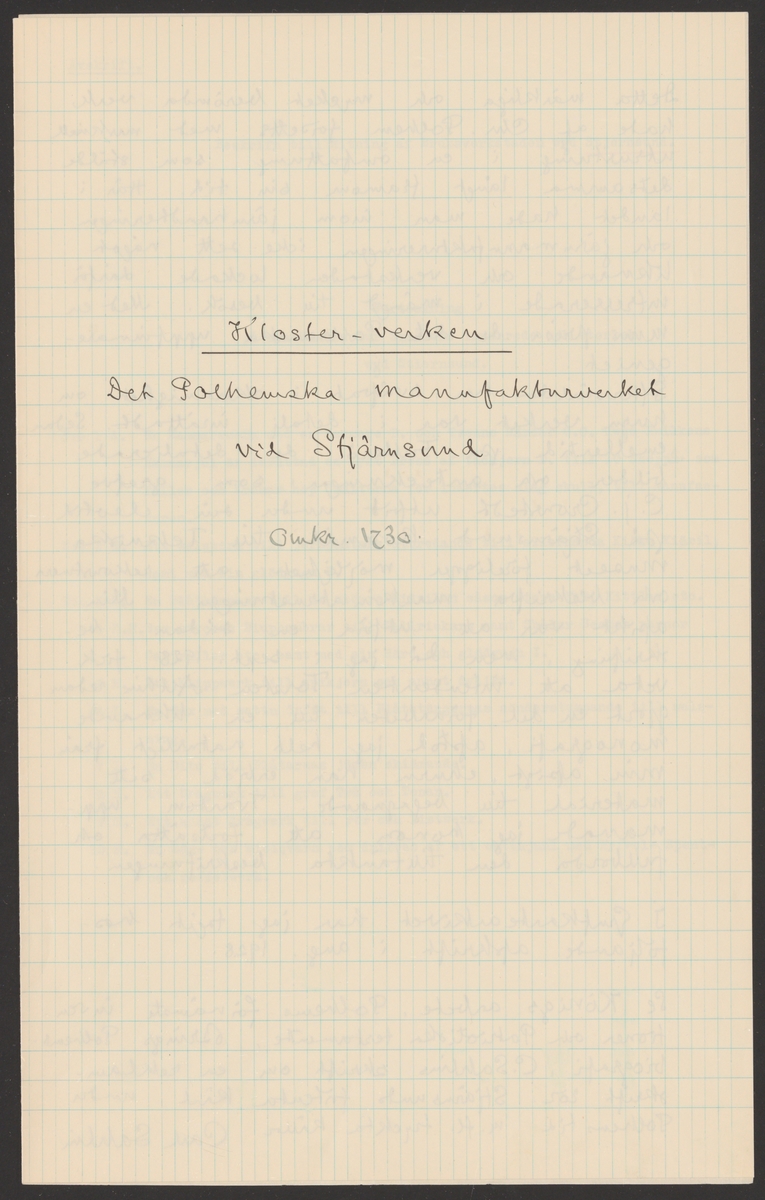 Kloster-verken
Det Polhemska manufakturverket
vid Stjärnsund
Omkr. 1730.